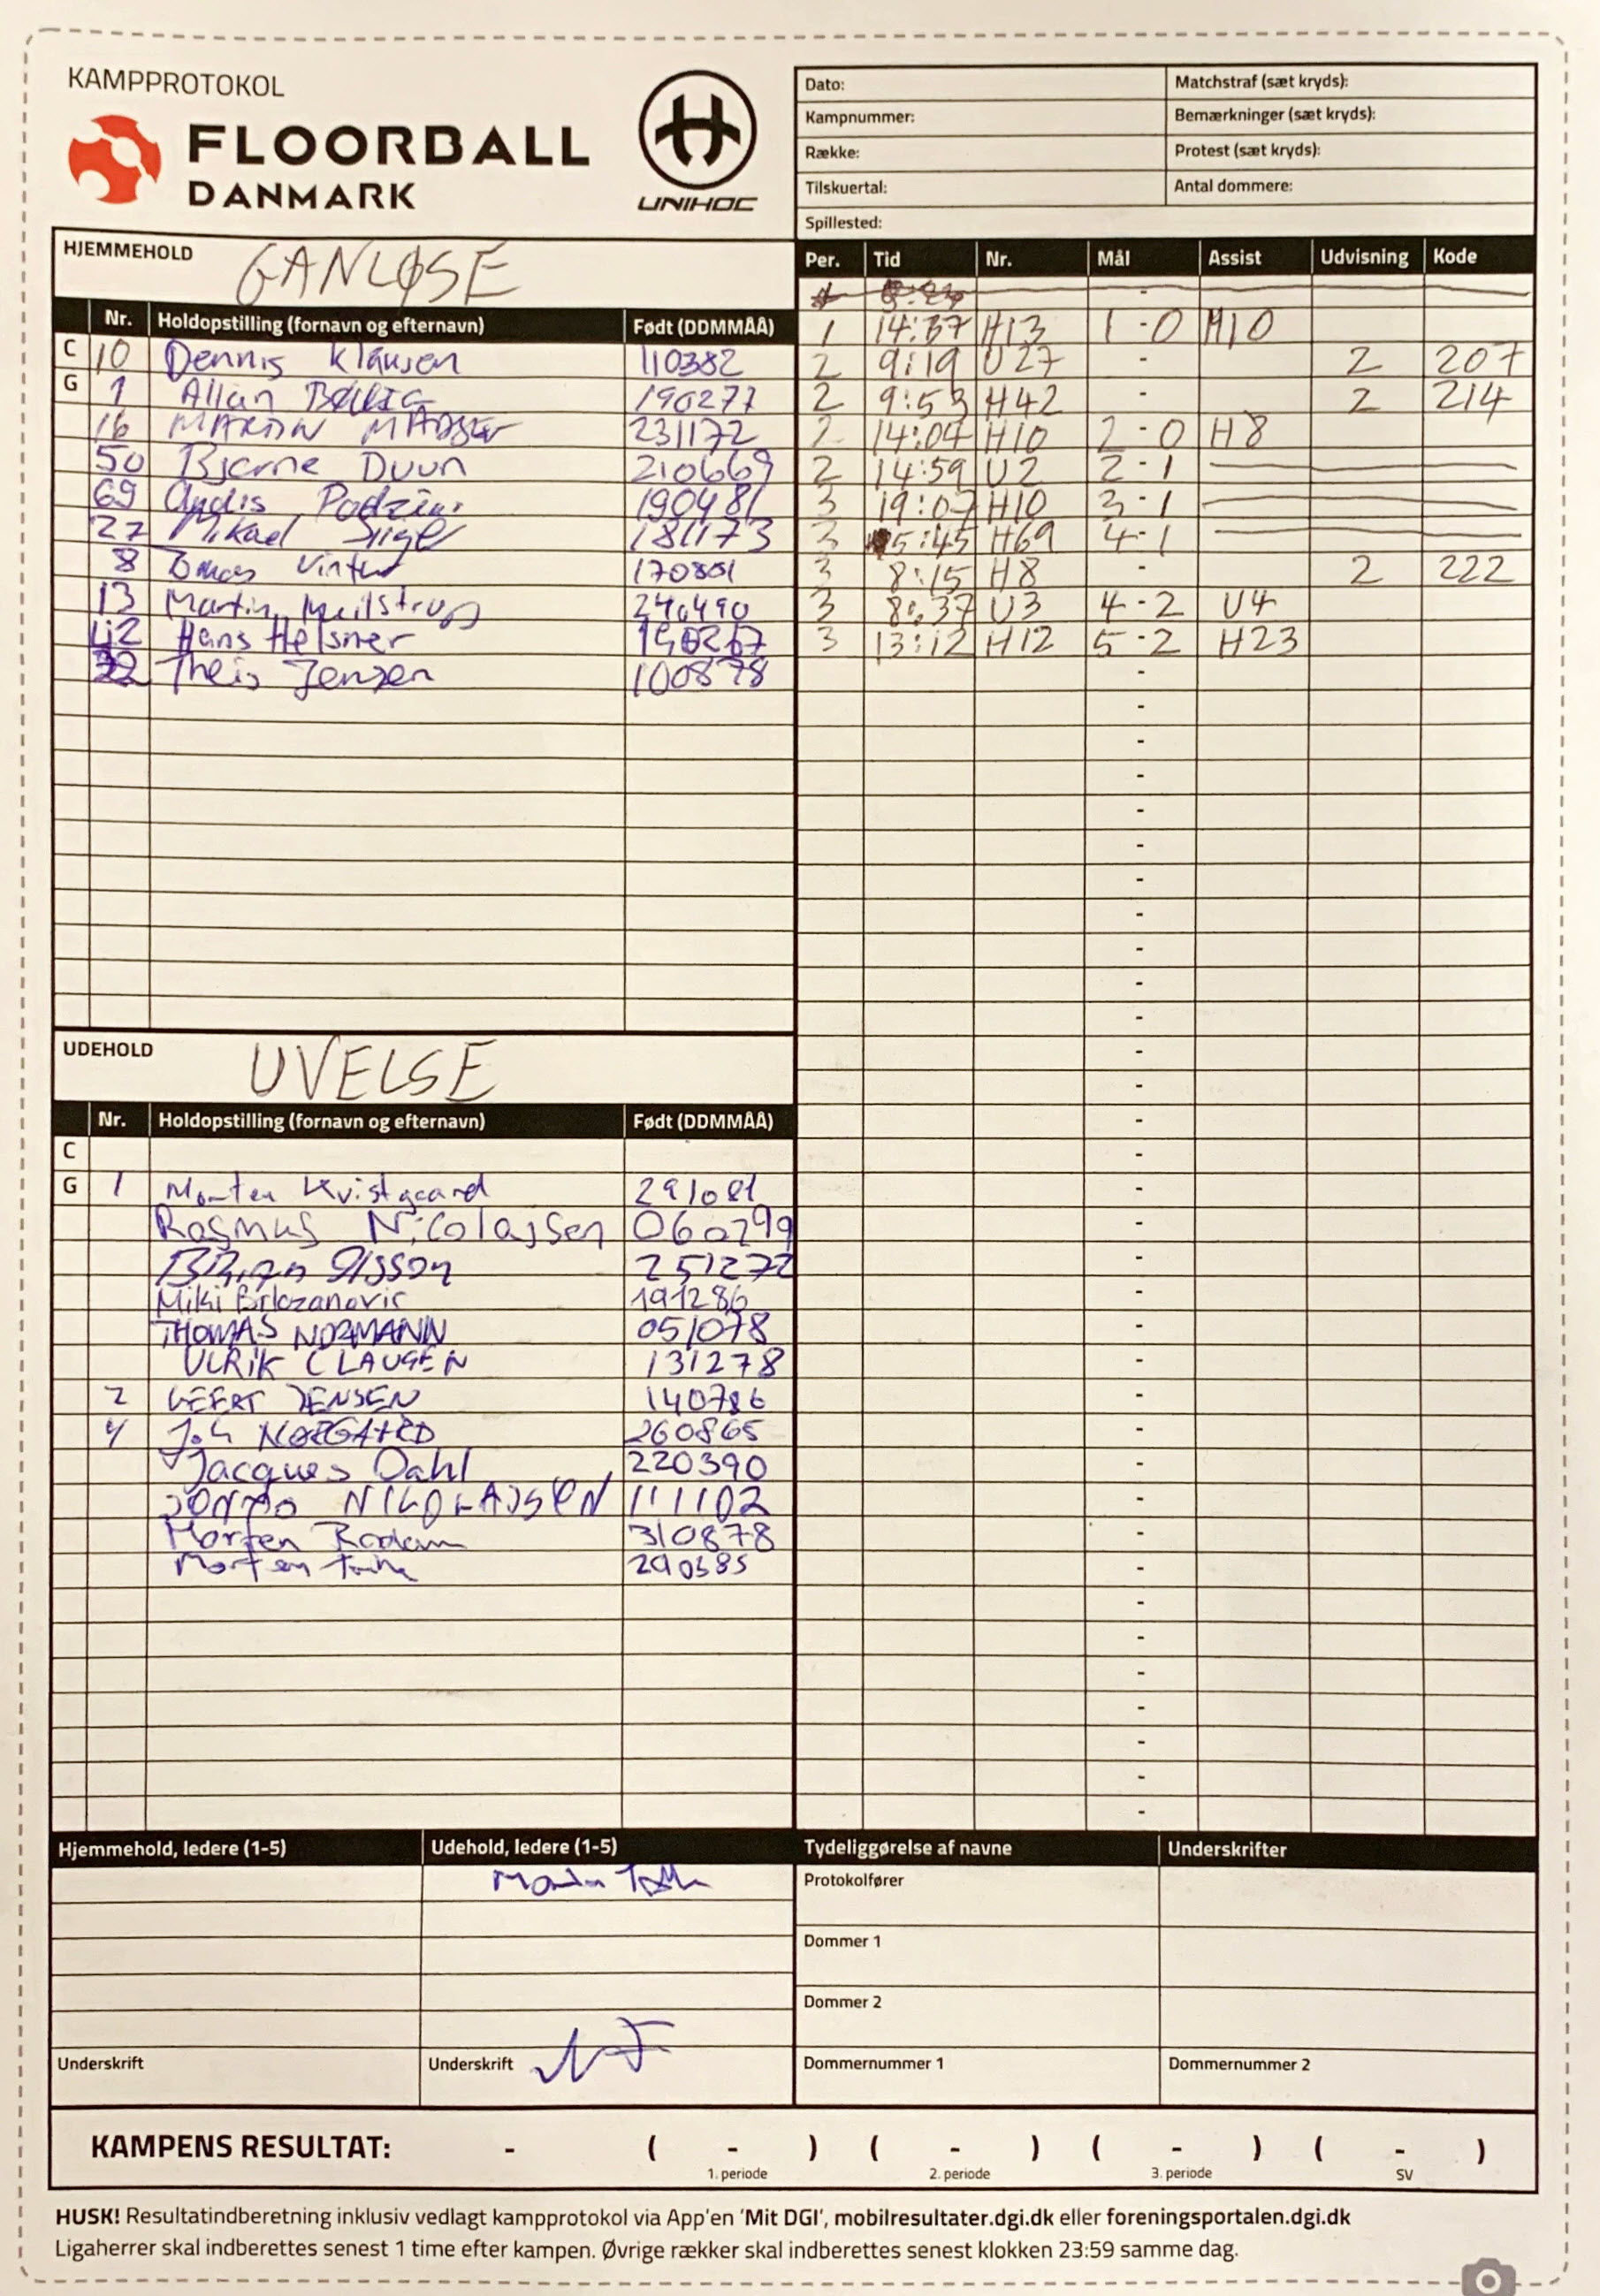 KAMPPROTOKOL
FLOORBALL
DANMARK
UNIHOC
Dato:
Matchstraf (sæt kryds):
Kampnummer:
Bemærkninger (sæt kryds):
Række:
Protest (sæt kryds):
Tilskuertal:
Antal dommere:
Spillested:
HJEMMEHOLD GANLØSE
Nr. Holdopstilling (fornavn og efternavn) Født (DDMMÅÅ)
C 10 Dennis Klausen 110382
G 1 Allan 190277
16 MARTIN MADSEN 231172
50 Bjarne Duun 210669
69 Andis 190481
27 Mikael 181173
8 Vinther
13 Martin Meilstrup 240490
42 Hans Helsner
Theis Jensen 100878
Per. Tid Nr. Mål Assist Udvisning Kode
1 14:37 H13 1-0 H10
2 9:19 U27 - 2 207
2 9:53 H42 - 2 214
2 14:04 H10 2-0 H8
2 14:59 U2 2-1
3 19:07 H10 3-1
3 5:45 H69 4-1
3 8:15 H8 - 2 222
3 8:37 U3 4-2 U4
3 13:12 H12 5-2 H23
UDEHOLD UVELSE
Nr. Holdopstilling (fornavn og efternavn) Født (DDMMÅÅ)
C
G 1 Morten Kvistgaard 291081
Rasmus Nicolajsen 060299
Brian Olsson 251272
Miki 191286
THOMAS NORMANN 051078
ULRIK CLAUSEN 131278
2 GEERT JENSEN 140786
4 NØRGAARD 260865
Jacques Dahl 220390
NIKOLAJSEN 111102
Morten Rodam 310878
Morten
Hjemmehold, ledere (1-5)
Udehold, ledere (1-5)
Tydeliggørelse af navne
Underskrifter
Protokolfører
Dommer 1
Dommer 2
Underskrift
Underskrift
Dommernummer 1
Dommernummer 2
KAMPENS RESULTAT: - ( - ) ( - ) ( - ) ( - )
1. periode 2. periode 3. periode SV
HUSK! Resultatindberetning inklusiv vedlagt kampprotokol via App'en 'Mit DGI', mobilresultater.dgi.dk eller foreningsportalen.dgi.dk
Ligaherrer skal indberettes senest 1 time efter kampen. Øvrige rækker skal indberettes senest klokken 23:59 samme dag.